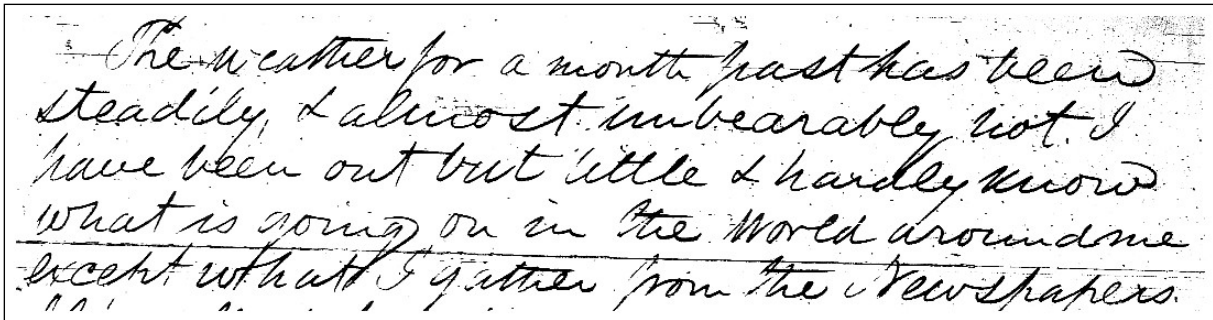 The weather for a month past has been
steadily, & almost unbearably hot. I
have been out but little & hardly know
what is going on in the World around me
except what I gather from the Newspapers.